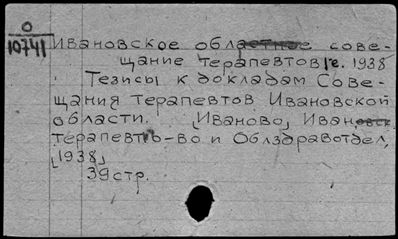 О
10741
Ивановское областное сове-
щание терапевтов, г. 1938
Тезисы к докладам Сове-
щания терапевтов Ивановской
области. Иваново, Ивановск
терапевт-во и Облздравотдел,
1938
39 стр.